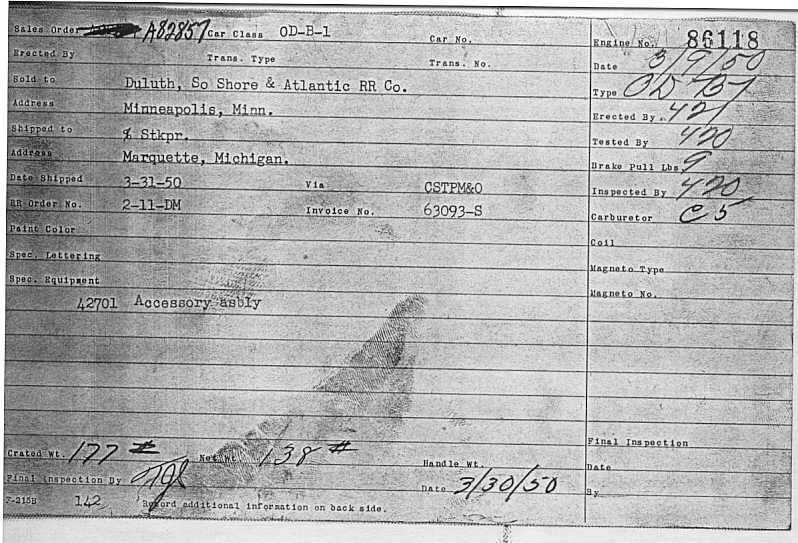 Sales Order A82857 Car Class OD-B-1 Car No. Engine No. 86118
Erected By Trans. Type Trans. No. Date 3/9/50
Sold to Duluth, So Shore & Atlantic RR Co. Type OD B1
Address Minneapolis, Minn. Erected By 421
Shipped to % Stkpr. Tested By 420
Address Marquette, Michigan. Brake Pull Lbs 9
Date Shipped 3-31-50 Via CSTPM&O Inspected By 420
RR Order No. 2-11-DM Invoice No. 63093-S Carburetor C5
Paint Color
Coil
Spec. Lettering
Magneto Type
Spec. Equipment
Magneto No.
42701 Accessory asbly
Final Inspection
Crated Wt. 177 # Net Wt. 138 # Handle Wt.
Date
Final Inspection By Date 3/30/50 By
F-215B 142 Record additional information on back side.